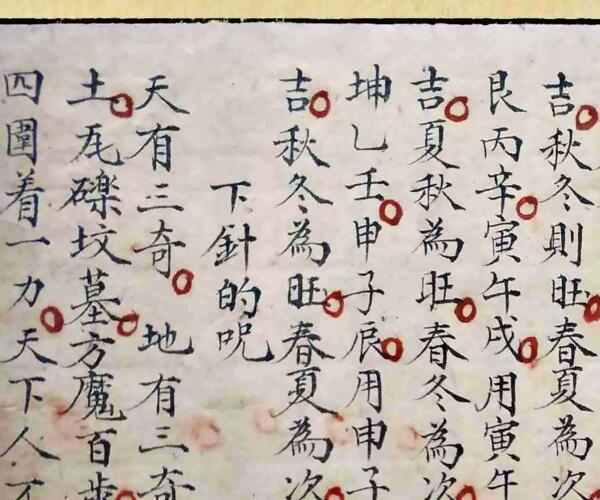 吉秋冬則旺春夏為次
艮丙辛寅午戌用寅午
吉夏秋為旺春冬為次
坤乙壬申子辰用申子
吉秋冬為旺春夏為次
下針的呪
天有三奇地有三奇
土瓦礫坟墓方魔百步
四圍着一力天下人不